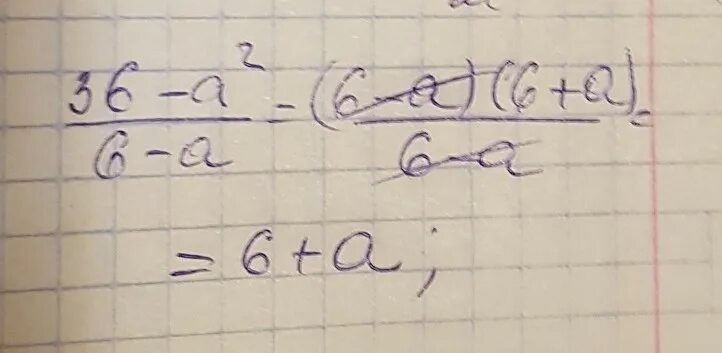 (36-a²)/(6-a) = ((6-a)(6+a))/(6-a) =
= 6+a;